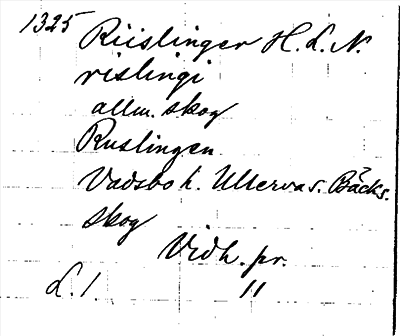 1325 Riislinger H. L. N.
rislingi
allm. skog
Ruslingen
Vadsbo h. Ullerva s. Bäcks.
skog
Vidh. pr.
L. 1. "